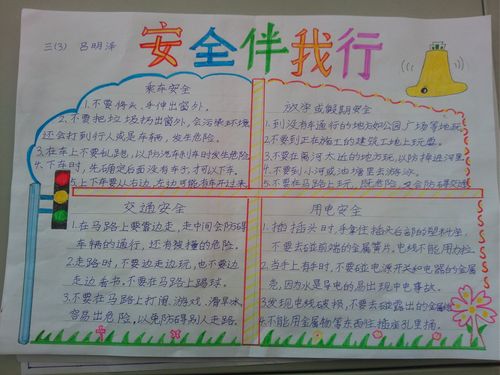 三(3) 吕明泽
安全伴我行
乘车安全
1.不要将头、手伸出窗外。
2.不要把垃圾扔出窗外,会污染环境
还会打到行人或是车辆,发生危险。
3.在车上不要乱跑,以防汽车刹车时发生危险
4.下车时,先确定后面没有车,才可以下车。
5.上下车要从右边,左边可能有车开过来
放学或假期安全
1.到没有车通行的地方如公园广场等地玩
2.不要到正在施工的建筑工地上玩耍。
3.不要在离河太近的地方玩,以防掉进河里
4.不要到小河或池塘里去游泳。
5.不要在马路上玩,既危险,又会防碍交通
交通安全
1.在马路上要靠边走,走中间会防碍
车辆的通行,还有被撞的危险。
2.走路时,不要边走边玩,也不要边
走边看书,不要在马路上踢球。
3.不要在马路上打闹、游戏、滑旱冰,
容易出危险,以免防碍别人走路。
用电安全
1.插插头时,手拿住插头后部的塑料座,
不要去碰前端的金属簧片,电线不能用力拉
2.当手上有水时,不要碰电源开关和电器的金属
壳,因为水是导电的易出现冲电事故。
3.发现电线破损,不要去碰露出的金属
4.不能用金属物等东西往插座孔里捅。